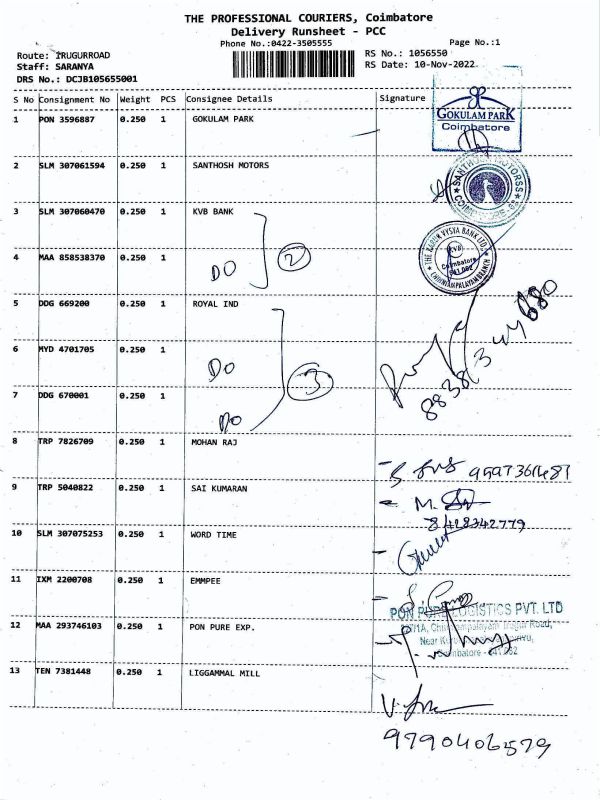 THE PROFESSIONAL COURIERS, Coimbatore
Delivery Runsheet - PCC
Phone No.:0422-3505555
Page No.:1
Route: IRUGURROAD
RS No.: 1056550
Staff: SARANYA
RS Date: 10-Nov-2022
DRS No.: DCJB105655001
S No Consignment No Weight PCS Consignee Details Signature
1 PON 3596887 0.250 1 GOKULAM PARK
GOKULAM PARK
Coimbatore
2 SLM 307061594 0.250 1 SANTHOSH MOTORS
SANTHOSH MOTORSS
3 SLM 307060470 0.250 1 KVB BANK
THE KARUR VYSYA BANK LTD.
KVB
Coimbatore
641 062
CHINNIAMPALAYAM BRANCH
4 MAA 858538370 0.250 1
DO 2
5 DDG 669200 0.250 1 ROYAL IND
6 MYD 4701705 0.250 1
DO 3
7 DDG 670001 0.250 1
DO
8 TRP 7826709 0.250 1 MOHAN RAJ
9 TRP 5040822 0.250 1 SAI KUMARAN
M.
8428342779
10 SLM 307075253 0.250 1 WORD TIME
11 IXM 2200708 0.250 1 EMMPEE
PON PURE LOGISTICS PVT. LTD
12 MAA 293746103 0.250 1 PON PURE EXP.
Road,
Near
Coimbatore - 641 062
13 TEN 7381448 0.250 1 LIGGAMMAL MILL
9790406579